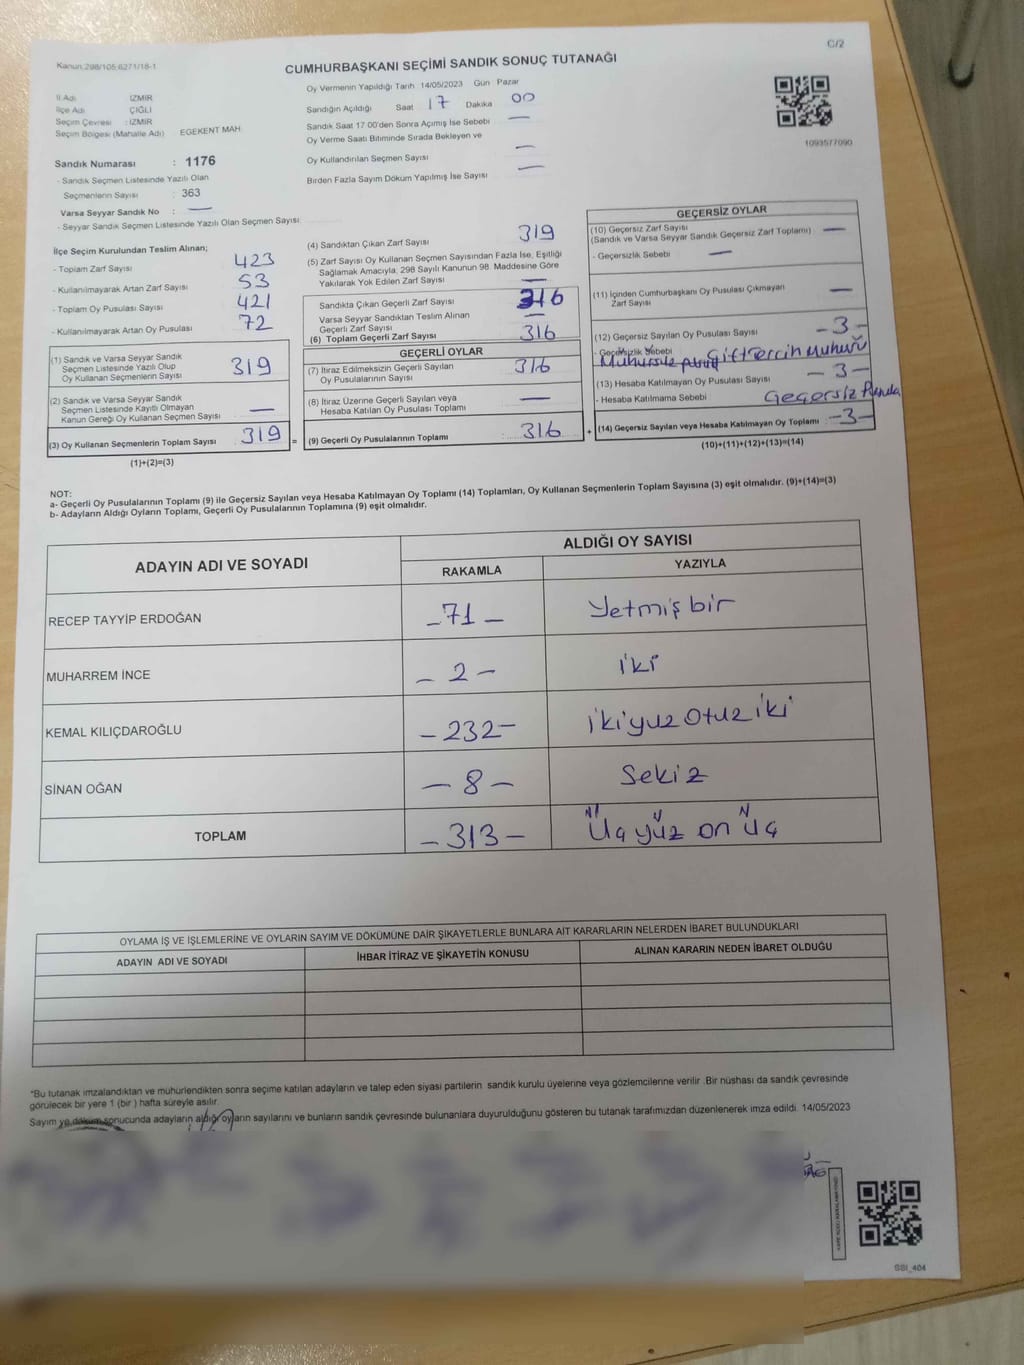 C/2
Kanun 298/105,6271/18-1
CUMHURBAŞKANI SEÇİMİ SANDIK SONUÇ TUTANAĞI
İl Adı İZMİR
İlçe Adı ÇİĞLİ
Seçim Çevresi : İZMİR
Seçim Bölgesi (Mahalle Adı) EGEKENT MAH.
Sandık Numarası : 1176
- Sandık Seçmen Listesinde Yazılı Olan
Seçmenlerin Sayısı : 363
Varsa Seyyar Sandık No : —
- Seyyar Sandık Seçmen Listesinde Yazılı Olan Seçmen Sayısı
Oy Vermenin Yapıldığı Tarih 14/05/2023 Gün Pazar
Sandığın Açıldığı Saat 17 Dakika 00
Sandık Saat 17:00'den Sonra Açılmış İse Sebebi —
Oy Verme Saati Bitiminde Sırada Bekleyen ve
Oy Kullandırılan Seçmen Sayısı —
Birden Fazla Sayım Döküm Yapılmış İse Sayısı —
1093577090
İlçe Seçim Kurulundan Teslim Alınan;
- Toplam Zarf Sayısı 423
- Kullanılmayarak Artan Zarf Sayısı 53
- Toplam Oy Pusulası Sayısı 421
- Kullanılmayarak Artan Oy Pusulası 72
(1) Sandık ve Varsa Seyyar Sandık
Seçmen Listesinde Yazılı Olup
Oy Kullanan Seçmenlerin Sayısı 319
(2) Sandık ve Varsa Seyyar Sandık
Seçmen Listesinde Kayıtlı Olmayan
Kanun Gereği Oy Kullanan Seçmen Sayısı —
(3) Oy Kullanan Seçmenlerin Toplam Sayısı 319 =
(1)+(2)=(3)
(4) Sandıktan Çıkan Zarf Sayısı 319
(5) Zarf Sayısı Oy Kullanan Seçmen Sayısından Fazla İse, Eşitliği
Sağlamak Amacıyla, 298 Sayılı Kanunun 98. Maddesine Göre
Yakılarak Yok Edilen Zarf Sayısı —
Sandıkta Çıkan Geçerli Zarf Sayısı 316
Varsa Seyyar Sandıktan Teslim Alınan
Geçerli Zarf Sayısı —
(6) Toplam Geçerli Zarf Sayısı 316
GEÇERLİ OYLAR
(7) İtiraz Edilmeksizin Geçerli Sayılan
Oy Pusulalarının Sayısı 316
(8) İtiraz Üzerine Geçerli Sayılan veya
Hesaba Katılan Oy Pusulası Toplamı —
(9) Geçerli Oy Pusulalarının Toplamı 316 +
GEÇERSİZ OYLAR
(10) Geçersiz Zarf Sayısı
(Sandık ve Varsa Seyyar Sandık Geçersiz Zarf Toplamı) —
- Geçersizlik Sebebi —
(11) İçinden Cumhurbaşkanı Oy Pusulası Çıkmayan
Zarf Sayısı —
(12) Geçersiz Sayılan Oy Pusulası Sayısı -3-
- Geçersizlik Sebebi Çift Tercih Mühürü
(13) Hesaba Katılmayan Oy Pusulası Sayısı -3-
- Hesaba Katılmama Sebebi Geçersiz
(14) Geçersiz Sayılan veya Hesaba Katılmayan Oy Toplamı : -3-
(10)+(11)+(12)+(13)=(14)
NOT:
a- Geçerli Oy Pusulalarının Toplamı (9) ile Geçersiz Sayılan veya Hesaba Katılmayan Oy Toplamı (14) Toplamları, Oy Kullanan Seçmenlerin Toplam Sayısına (3) eşit olmalıdır. (9)+(14)=(3)
b- Adayların Aldığı Oyların Toplamı, Geçerli Oy Pusulalarının Toplamına (9) eşit olmalıdır.
ADAYIN ADI VE SOYADI
ALDIĞI OY SAYISI
RAKAMLA YAZIYLA
RECEP TAYYİP ERDOĞAN -71- Yetmiş bir
MUHARREM İNCE -2- iki
KEMAL KILIÇDAROĞLU -232- ikiyuz Otuz iki
SİNAN OĞAN -8- Sekiz
TOPLAM -313- Üçyüz on üç
OYLAMA İŞ VE İŞLEMLERİNE VE OYLARIN SAYIM VE DÖKÜMÜNE DAİR ŞİKAYETLERLE BUNLARA AİT KARARLARIN NELERDEN İBARET BULUNDUKLARI
ADAYIN ADI VE SOYADI İHBAR İTİRAZ VE ŞİKAYETİN KONUSU ALINAN KARARIN NEDEN İBARET OLDUĞU
*Bu tutanak imzalandıktan ve mühürlendikten sonra seçime katılan adayların ve talep eden siyasi partilerin sandık kurulu üyelerine veya gözlemcilerine verilir .Bir nüshası da sandık çevresinde
görülecek bir yere 1 (bir ) hafta süreyle asılır.
Sayım ve döküm sonucunda adayların aldığı oyların sayılarını ve bunların sandık çevresinde bulunanlara duyurulduğunu gösteren bu tutanak tarafımızdan düzenlenerek imza edildi. 14/05/2023
SSI_404